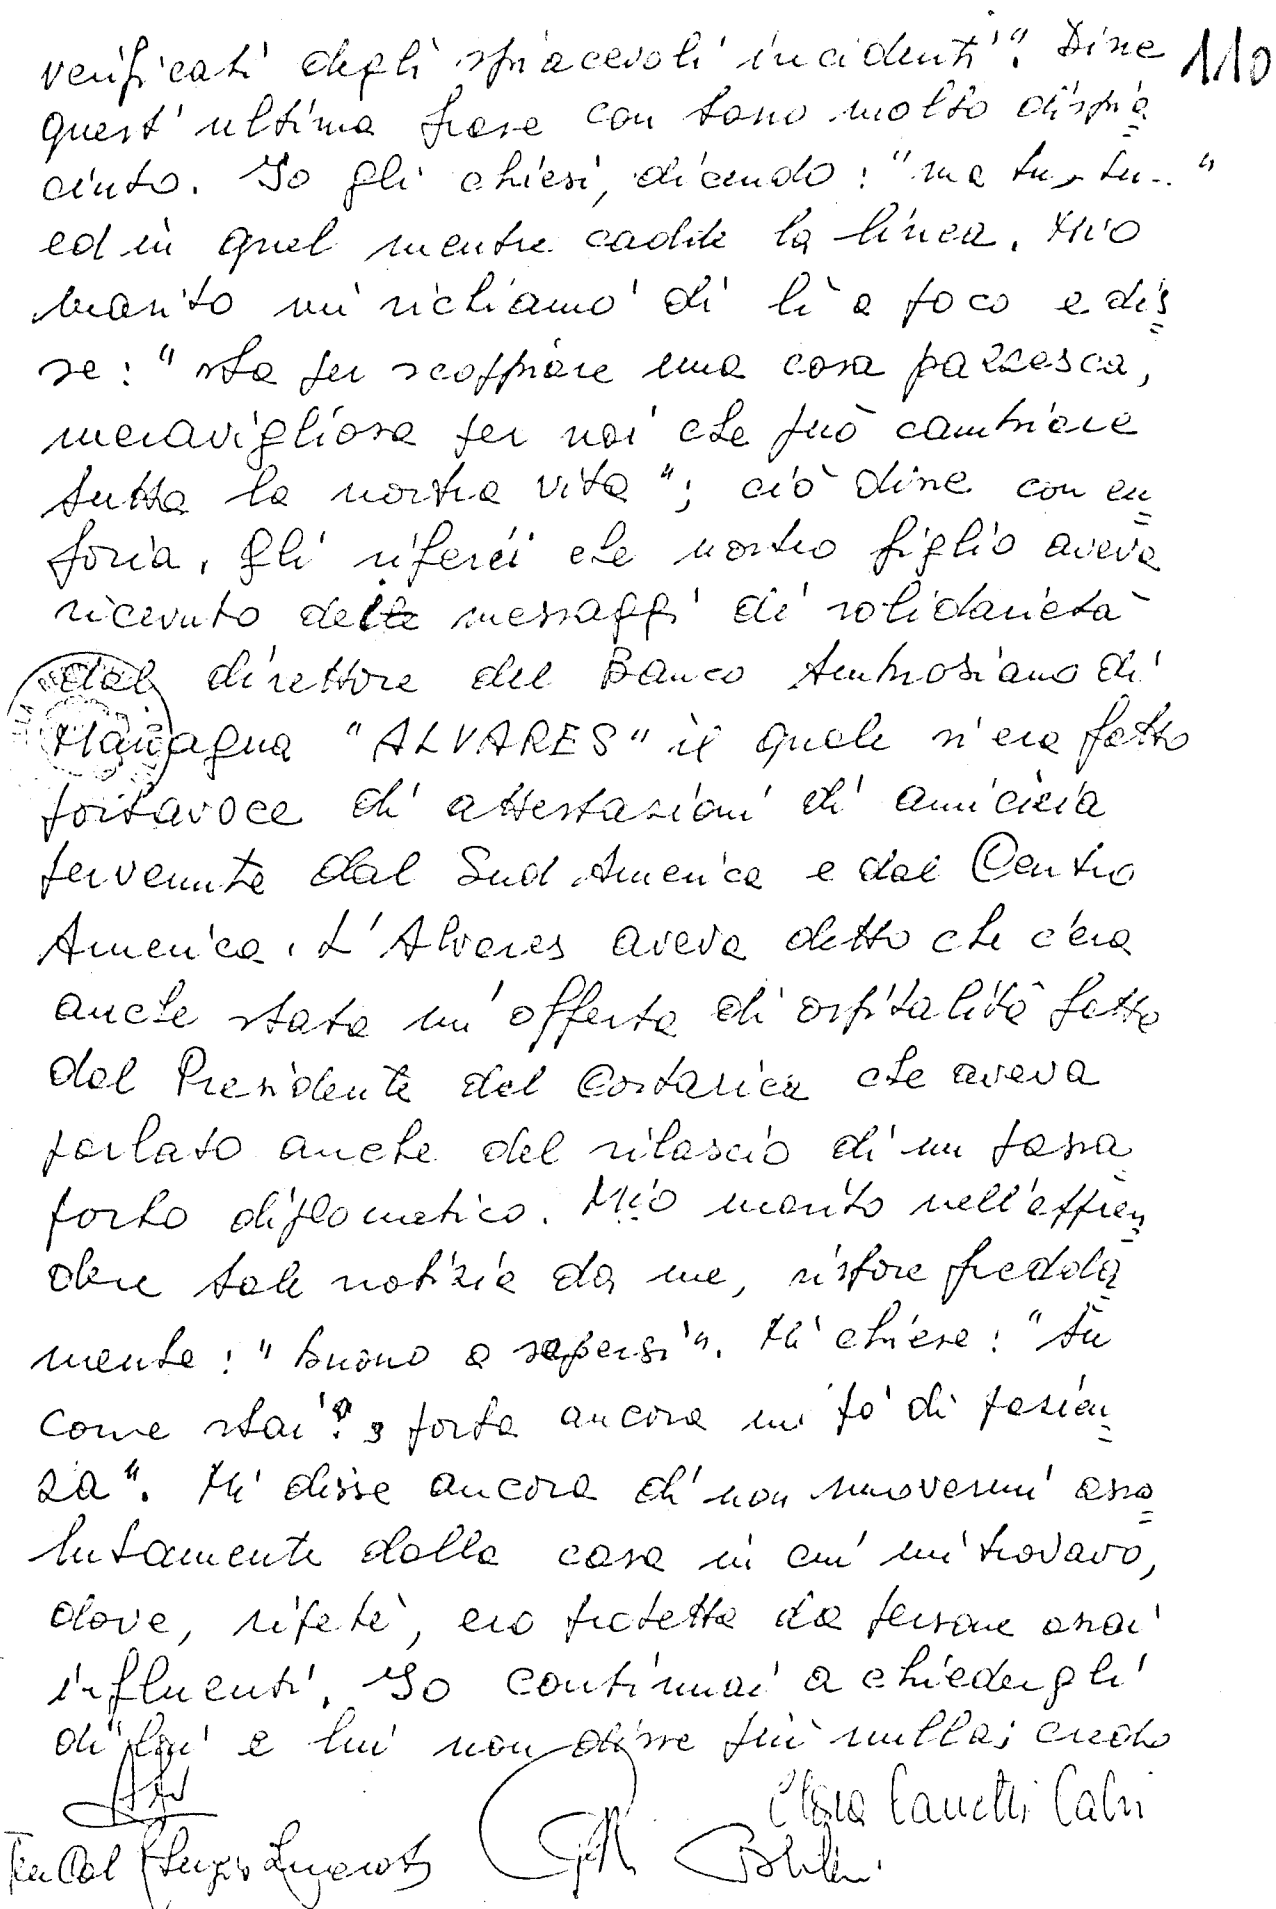 verificati degli spiacevoli incidenti". Disse 110
quest'ultima frase con tono molto dispia=
ciuto. Io gli chiesi, dicendo: "ma tu, tu.. "
ed in quel mentre cadde la linea. Mio
marito mi richiamò di lì a poco e dis=
se: "sta per scoppiare una cosa pazzesca,
meravigliosa per noi che può cambiare
tutta la nostra vita"; ciò disse con eu=
foria. Gli riferii che nostro figlio aveva
ricevuto dei messaggi di solidarietà
dal direttore del Banco Ambrosiano di
Managua "ALVARES" il quale s'era fatto
portavoce di attestazioni di amicizia
pervenute dal Sud America e dal Centro
America. L'Alvares aveva detto che c'era
anche stata un'offerta di ospitalità fatta
dal Presidente del Costarica che aveva
parlato anche del rilascio di un passa
porto diplomatico. Mio marito nell'appren=
dere tale notizie da me, rispose fredda=
mente: "buono a sapersi". Mi chiese: "tu
come stai?, porta ancora un pò di pazien=
za". Mi disse ancora di non muovermi asso=
lutamente dalla casa in cui mi trovavo,
dove, ripetè, ero protetta da persone assai
influenti. Io continuai a chiedergli
di lui e lui non disse più nulla; credo
Clara Canetti Calvi
Ten Col Sergio